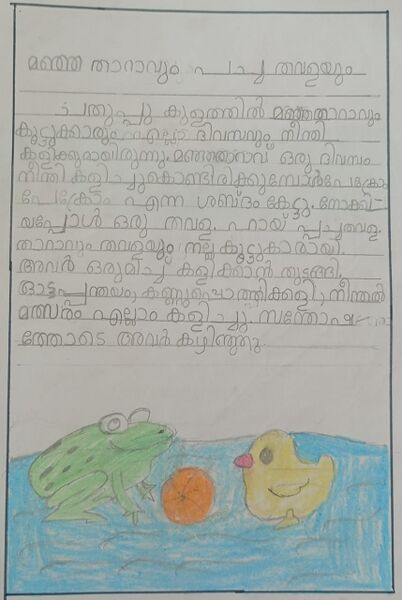 മഞ്ഞ താറാവും പച്ച തവളയും
ചതുപ്പു കുളത്തിൽ മഞ്ഞതാറാവും
കൂട്ടുക്കാരും എല്ലാ ദിവസവും നീന്തി
കുളിക്കുമായിരുന്നു. മഞ്ഞതാറാവ് ഒരു ദിവസം
നീന്തി കളിച്ചുകൊണ്ടിരിക്കുമ്പോൾ പേക്രോം
പേക്രോം എന്ന ശബ്ദം കേട്ടു. നോക്കി
യപ്പോൾ ഒരു തവള. ഹായ് പച്ചതവള.
താറാവും തവളയും നല്ല കൂട്ടുകാരായി.
അവർ ഒരുമിച്ച് കളിക്കാൻ തുടങ്ങി.
ഓട്ടപ്പന്തയം, കണ്ണുപൊത്തിക്കളി, നീന്തൽ
മത്സരം എല്ലാം കളിച്ചു. സന്തോഷ
ത്തോടെ അവർ കഴിഞ്ഞു.